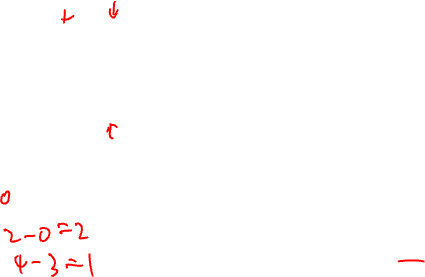 + ↓
↑
0
2-0=2
4-3=1
—